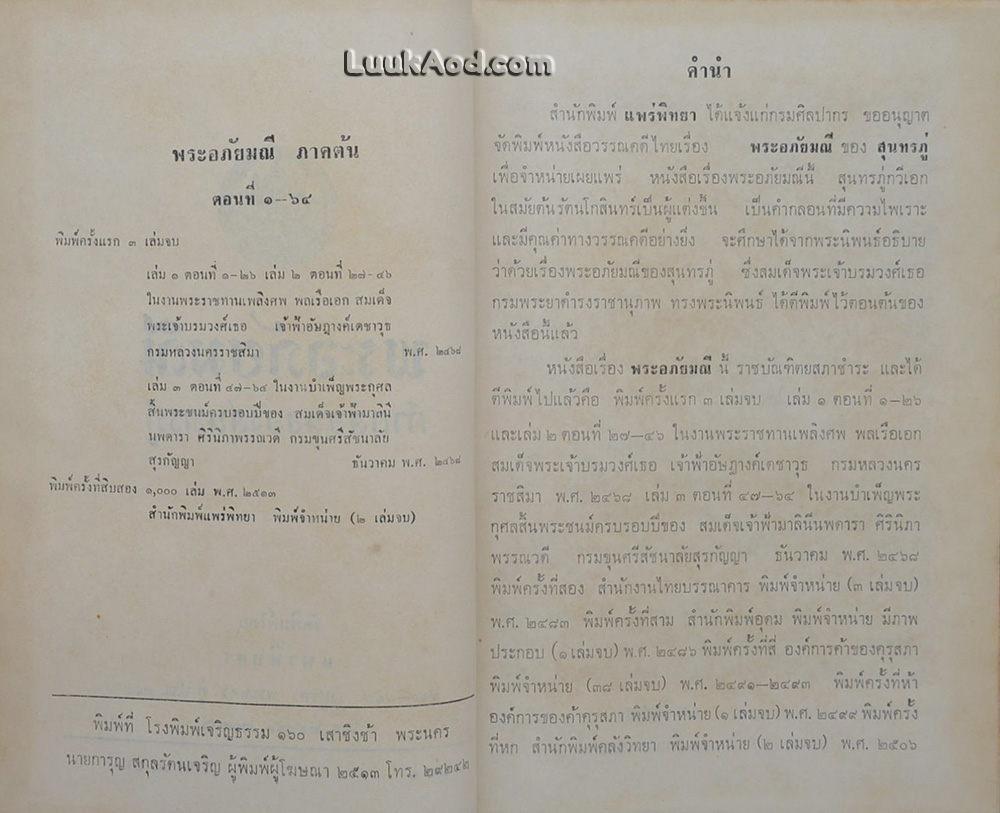 LuukAod.com
พระอภัยมณี ภาคต้น
ตอนที่ ๑--๖๔
พิมพ์ครั้งแรก ๓ เล่มจบ
เล่ม ๑ ตอนที่ ๑-๒๖ เล่ม ๒ ตอนที่ ๒๗-๔๖
ในงานพระราชทานเพลิงศพ พลเรือเอก สมเด็จ
พระเจ้าบรมวงศ์เธอ เจ้าฟ้าอัษฎางค์เดชาวุธ
กรมหลวงนครราชสิมา พ.ศ. ๒๔๖๘
เล่ม ๓ ตอนที่ ๔๗-๖๔ ในงานบำเพ็ญพระกุศล
สิ้นพระชนม์ครบรอบปีของ สมเด็จเจ้าฟ้ามาลินี
นพดารา ศิรินิภาพรรณวดี กรมขุนศรีสัชนาลัย
สุรกัญญา ธันวาคม พ.ศ. ๒๔๖๘
พิมพ์ครั้งที่สิบสอง ๑,๐๐๐ เล่ม พ.ศ. ๒๕๑๓
สำนักพิมพ์แพร่พิทยา พิมพ์จำหน่าย (๒ เล่มจบ)
พิมพ์ที่ โรงพิมพ์เจริญธรรม ๑๖๐ เสาชิงช้า พระนคร
นายการุญ สกุลรัตนเจริญ ผู้พิมพ์ผู้โฆษณา ๒๕๑๓ โทร. ๒๙๒๔๒
คำนำ
สำนักพิมพ์ แพร่พิทยา ได้แจ้งแก่กรมศิลปากร ขออนุญาต
จัดพิมพ์หนังสือวรรณคดีไทยเรื่อง พระอภัยมณี ของ สุนทรภู่
เพื่อจำหน่ายเผยแพร่ หนังสือเรื่องพระอภัยมณีนี้ สุนทรภู่กวีเอก
ในสมัยต้นรัตนโกสินทร์เป็นผู้แต่งขึ้น เป็นคำกลอนที่มีความไพเราะ
และมีคุณค่าทางวรรณคดีอย่างยิ่ง จะศึกษาได้จากพระนิพนธ์อธิบาย
ว่าด้วยเรื่องพระอภัยมณีของสุนทรภู่ ซึ่งสมเด็จพระเจ้าบรมวงศ์เธอ
กรมพระยาดำรงราชานุภาพ ทรงพระนิพนธ์ ได้ตีพิมพ์ไว้ตอนต้นของ
หนังสือนี้แล้ว
หนังสือเรื่อง พระอภัยมณี นี้ ราชบัณฑิตยสภาชำระ และได้
ตีพิมพ์ไปแล้วคือ พิมพ์ครั้งแรก ๓ เล่มจบ เล่ม ๑ ตอนที่ ๑-๒๖
และเล่ม ๒ ตอนที่ ๒๗-๔๖ ในงานพระราชทานเพลิงศพ พลเรือเอก
สมเด็จพระเจ้าบรมวงศ์เธอ เจ้าฟ้าอัษฎางค์เดชาวุธ กรมหลวงนคร
ราชสิมา พ.ศ. ๒๔๖๘ เล่ม ๓ ตอนที่ ๔๗-๖๔ ในงานบำเพ็ญพระ
กุศลสิ้นพระชนม์ครบรอบปีของ สมเด็จเจ้าฟ้ามาลินีนพดารา ศิรินิภา
พรรณวดี กรมขุนศรีสัชนาลัยสุรกัญญา ธันวาคม พ.ศ. ๒๔๖๘
พิมพ์ครั้งที่สอง สำนักงานไทยบรรณาคาร พิมพ์จำหน่าย (๓ เล่มจบ)
พ.ศ. ๒๔๘๓ พิมพ์ครั้งที่สาม สำนักพิมพ์อุดม พิมพ์จำหน่าย มีภาพ
ประกอบ (๑ เล่มจบ) พ.ศ. ๒๔๘๖ พิมพ์ครั้งที่สี่ องค์การค้าของคุรุสภา
พิมพ์จำหน่าย (๓๘ เล่มจบ) พ.ศ. ๒๔๙๑—๒๔๙๓ พิมพ์ครั้งที่ห้า
องค์การของค้าคุรุสภา พิมพ์จำหน่าย (๑ เล่มจบ) พ.ศ. ๒๔๙๙ พิมพ์ครั้ง
ที่หก สำนักพิมพ์คลังวิทยา พิมพ์จำหน่าย (๒ เล่มจบ) พ.ศ. ๒๕๐๖